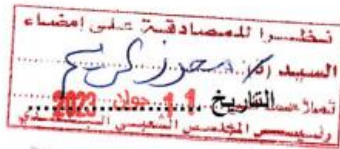 نظرا للمصادقة على إمضاء
السيد (ة) محرز كريم
التاريخ 11 جوان 2023
رئيس المجلس الشعبي البلدي